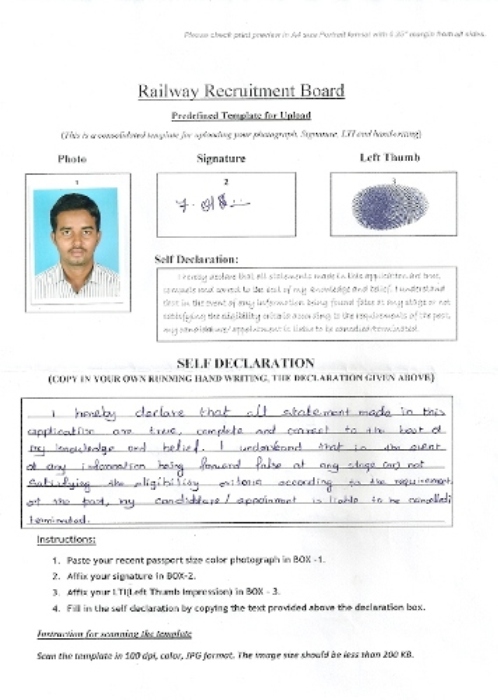 Please check print preview in A4 size Portrait format with 0.25" margin from all sides.
Railway Recruitment Board
Predefined Template for Upload
(This is a consolidated template for uploading your photograph, Signature, LTI and handwriting)
Photo Signature Left Thumb
1 2 3
Self Declaration:
I hereby declare that all statements made in this application are true,
complete and correct to the best of my knowledge and belief. I understand
that in the event of any information being found false at any stage or not
satisfying the eligibility criteria according to the requirements of the post,
my candidature/ appointment is liable to be cancelled/terminated.
SELF DECLARATION
(COPY IN YOUR OWN RUNNING HAND WRITING, THE DECLARATION GIVEN ABOVE)
I hereby declare that all statement made in this
application are true, complete and correct to the best of
my knowledge and belief. I understand that in the event
of any information being forward false at any stage (or) not
Satisfying the eligibility criteria according to the requirement
of the post, my candidature / appoinment is liable to be cancelled/
terminated.
Instructions:
1. Paste your recent passport size color photograph in BOX -1.
2. Affix your signature in BOX-2.
3. Affix your LTI(Left Thumb Impression) in BOX - 3.
4. Fill in the self declaration by copying the text provided above the declaration box.
Instruction for scanning the template
Scan the template in 100 dpi, color, JPG format. The image size should be less than 200 KB.